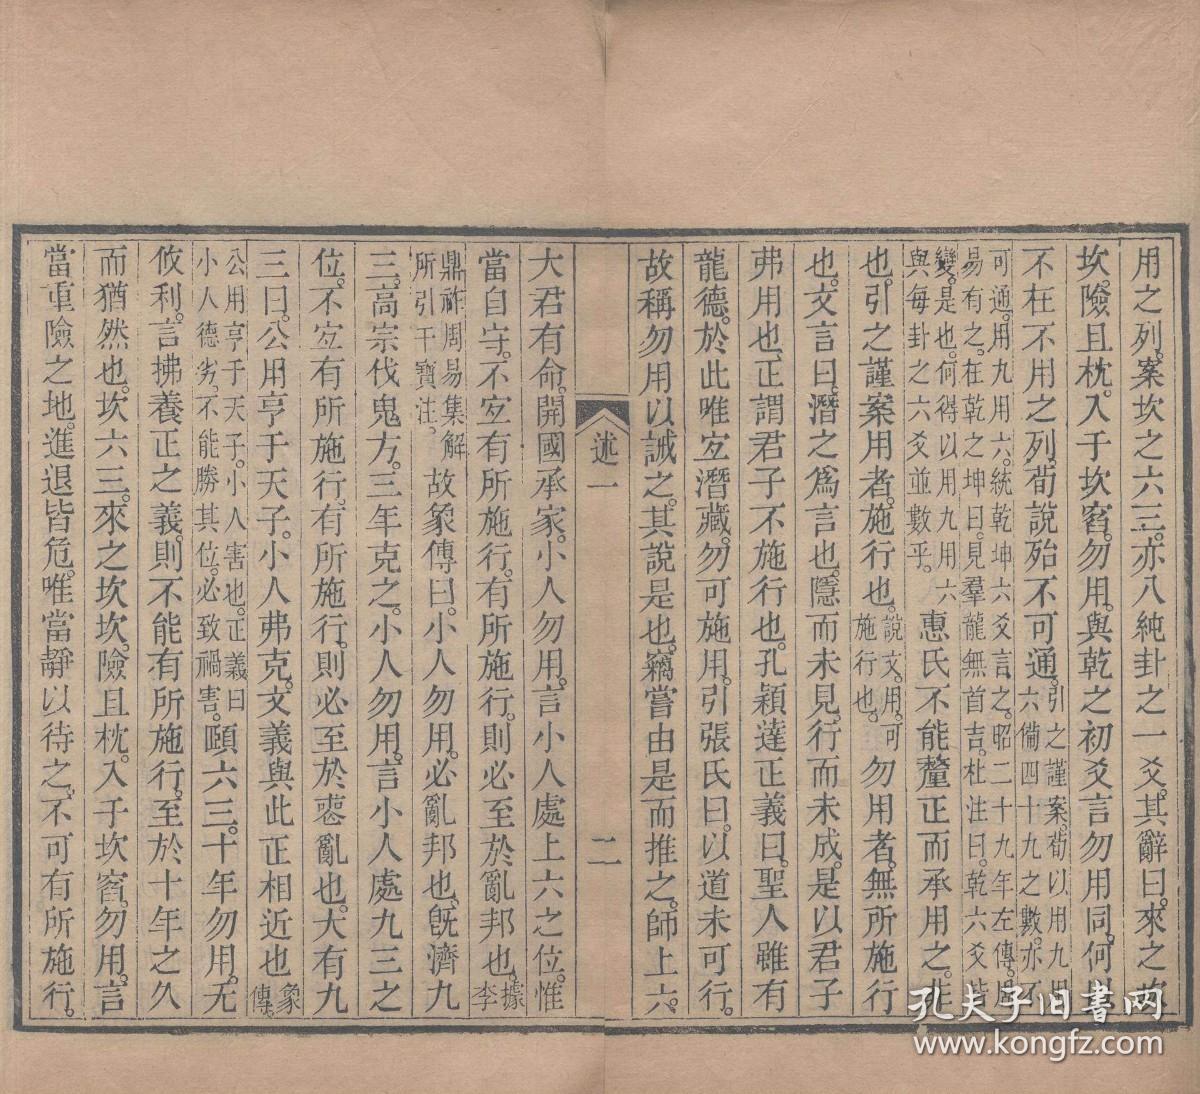 用之列。案坎之六三。亦八純卦之一爻。其辭曰。來之
坎。險且枕。入于坎窞。勿用。與乾之初爻言勿用同。何
不在不用之列。荀說殆不可通。引之謹案。荀以用九用
六備四十九之數。亦不
可通。用九用六。統乾坤六爻言之。昭二十九年左傳。
易有之。在乾之坤曰。見羣龍無首吉。杜注曰。乾六爻皆
變。是也。何得以用九用六
與每卦之六爻並數乎。惠氏不能釐正而承用之。非
也。引之謹案。用者。施行也。說文。用。可
施行也。勿用者。無所施行
也。文言曰。潛之爲言也。隱而未見。行而未成。是以君子
弗用也。正謂君子不施行也。孔穎達正義曰。聖人雖有
龍德。於此唯宜潛藏。勿可施用。引張氏曰。以道未可行。
故稱勿用以誡之。其說是也。竊嘗由是而推之。師上六。
述一
二
大君有命。開國承家。小人勿用。言小人處上六之位。惟
當自守。不宜有所施行。有所施行。則必至於亂邦也。據
李
鼎祚周易集解
所引干寶注。故象傳曰。小人勿用。必亂邦也。旣濟九
三。高宗伐鬼方。三年克之。小人勿用。言小人處九三之
位。不宜有所施行。有所施行。則必至於憊亂也。大有九
三曰。公用亨于天子。小人弗克。文義與此正相近也。象
傳
公用亨于天子。小人害也。正義曰
小人德劣。不能勝其位。必致禍害。頤六三。十年勿用。无
攸利。言拂養正之義。則不能有所施行。至於十年之久
而猶然也。坎六三。來之坎坎。險且枕。入于坎窞。勿用。言
當重險之地。進退皆危。唯當靜以待之。不可有所施行。
孔夫子旧书网
www.kongfz.com